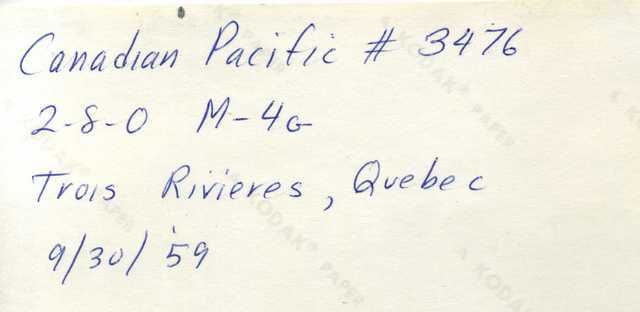 Canadian Pacific # 3476
2-8-0 M-4G
Trois Rivieres, Quebec
9/30/'59
KODAK® PAPER
KODAK® PAPER
KODAK® PAPER
KODAK